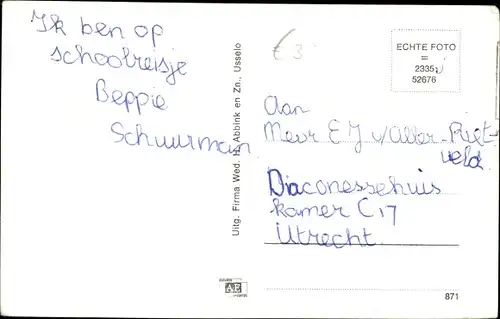 Ik ben op
schoolreisje
Beppie
Schuurman
Uitg. Firma Wed. H. Abbink en Zn., Usselo
€3
ECHTE FOTO
=
2335
52676
Aan
Mevr E J v/Aller-Riet
veld.
Diaconessehuis
kamer C 17
Utrecht.
AE
871